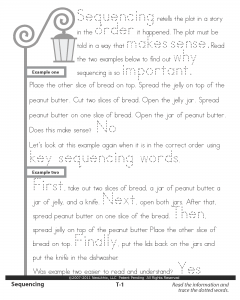 Sequencing retells the plot in a story
in the order it happened. The plot must be
told in a way that makes sense. Read
the two examples below to find out why
sequencing is so important.
Example one
Place the other slice of bread on top. Spread the jelly on top of the
peanut butter. Cut two slices of bread. Open the jelly jar. Spread
peanut butter on one slice of bread. Open the jar of peanut butter.
Does this make sense? No
Let's look at the example again when it is in the correct order using
key sequencing words.
Example two
First, take out two slices of bread, a jar of peanut butter, a
jar of jelly, and a knife. Next, open both jars. After that,
spread peanut butter on one slice of the bread. Then,
spread jelly on top of the peanut butter. Place the other slice of
bread on top. Finally, put the lids back on the jars and
put the knife in the dishwasher.
Was example two easier to read and understand? Yes
Sequencing
T-1
Read the information and
trace the dotted words.